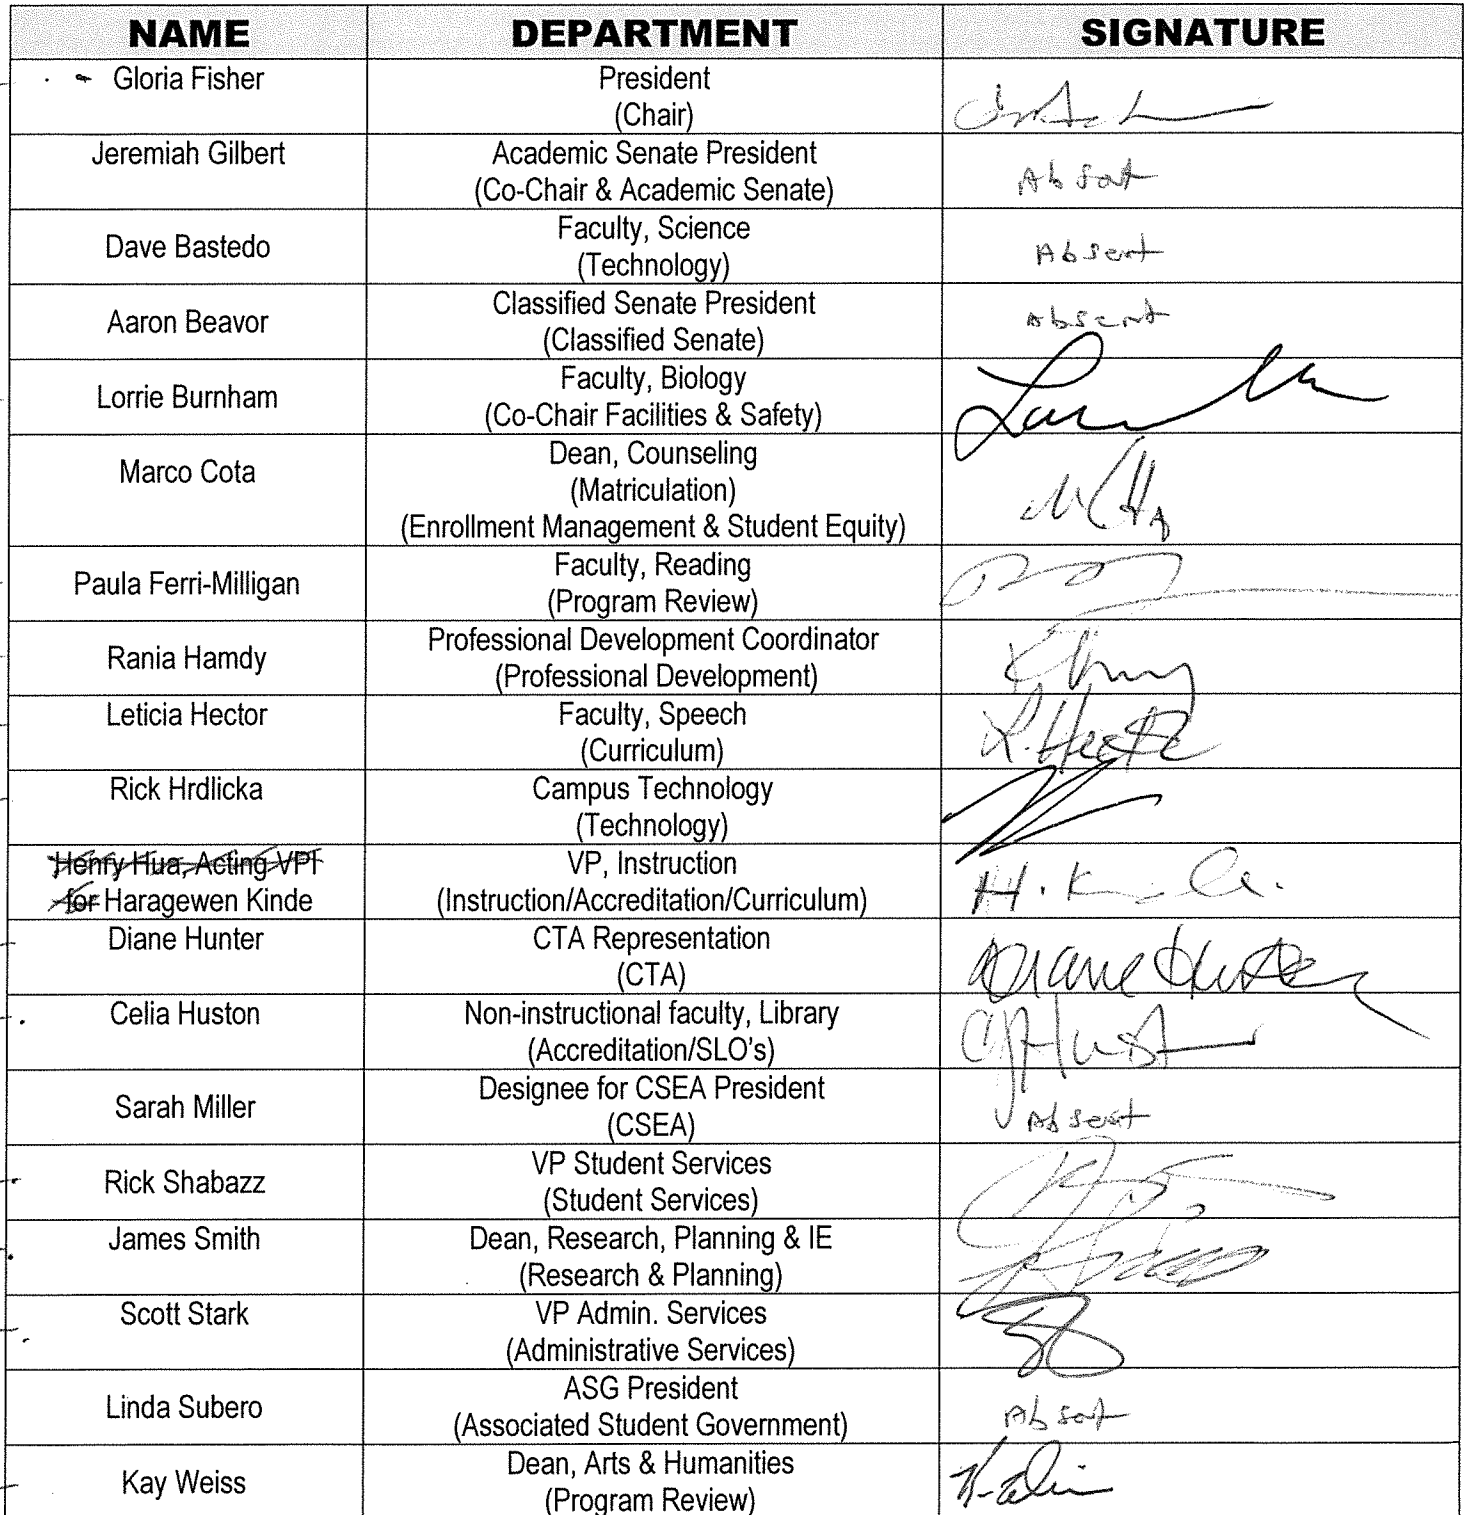 NAME DEPARTMENT SIGNATURE
Gloria Fisher
President
(Chair)
Jeremiah Gilbert
Academic Senate President
(Co-Chair & Academic Senate)
Absent
Dave Bastedo
Faculty, Science
(Technology)
Absent
Aaron Beavor
Classified Senate President
(Classified Senate)
Absent
Lorrie Burnham
Faculty, Biology
(Co-Chair Facilities & Safety)
Marco Cota
Dean, Counseling
(Matriculation)
(Enrollment Management & Student Equity)
Paula Ferri-Milligan
Faculty, Reading
(Program Review)
Rania Hamdy
Professional Development Coordinator
(Professional Development)
Leticia Hector
Faculty, Speech
(Curriculum)
L. Hector
Rick Hrdlicka
Campus Technology
(Technology)
Henry Hua, Acting VPI
for Haragewen Kinde
VP, Instruction
(Instruction/Accreditation/Curriculum)
H. Kinde.
Diane Hunter
CTA Representation
(CTA)
Diane Hunter
Celia Huston
Non-instructional faculty, Library
(Accreditation/SLO's)
CJHuston
Sarah Miller
Designee for CSEA President
(CSEA)
Absent
Rick Shabazz
VP Student Services
(Student Services)
James Smith
Dean, Research, Planning & IE
(Research & Planning)
Scott Stark
VP Admin. Services
(Administrative Services)
Linda Subero
ASG President
(Associated Student Government)
Absent
Kay Weiss
Dean, Arts & Humanities
(Program Review)